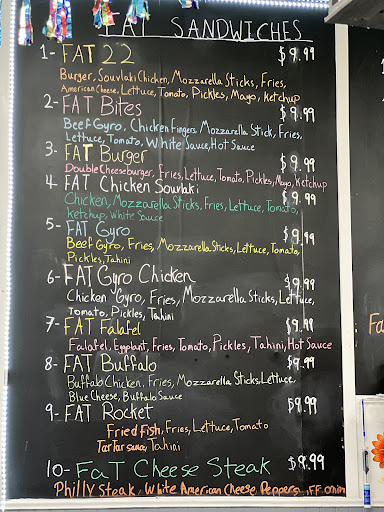 FAT SANDWICHES
1- FAT 22 $9.99
Burger, Souvlaki Chicken, Mozzarella Sticks, Fries,
American Cheese, Lettuce, Tomato, Pickles, Mayo, Ketchup
2- FAT Bites $9.99
Beef Gyro, Chicken Fingers Mozzarella Stick, Fries,
Lettuce, Tomato, White Sauce, Hot Sauce
3- FAT Burger $9.99
Double Cheeseburger, Fries, Lettuce, Tomato, Pickles, Mayo, Ketchup
4 FAT Chicken Souvlaki $9.99
Chicken, Mozzarella Sticks, Fries, Lettuce, Tomato,
Ketchup, White Sauce
5- FAT Gyro $9.99
Beef Gyro, Fries, Mozzarella Sticks, Lettuce, Tomato,
Pickles, Tahini
6- FAT Gyro Chicken $9.99
Chicken Gyro, Fries, Mozzarella Sticks, Lettuce,
Tomato, Pickles, Tahini
7- FAT Falafel $9.99
Falafel, Eggplant, Fries, Tomato, Pickles, Tahini, Hot Sauce
8- FAT Buffalo $9.99
Buffalo Chicken, Fries, Mozzarella Sticks, Lettuce,
Blue Cheese, Buffalo Sauce
9- FAT Rocket $9.99
Fried Fish, Fries, Lettuce, Tomato
Tartar sauce, Tahini
10- FaT Cheese Steak $9.99
Philly Steak, White American Cheese Peppers, FF onion